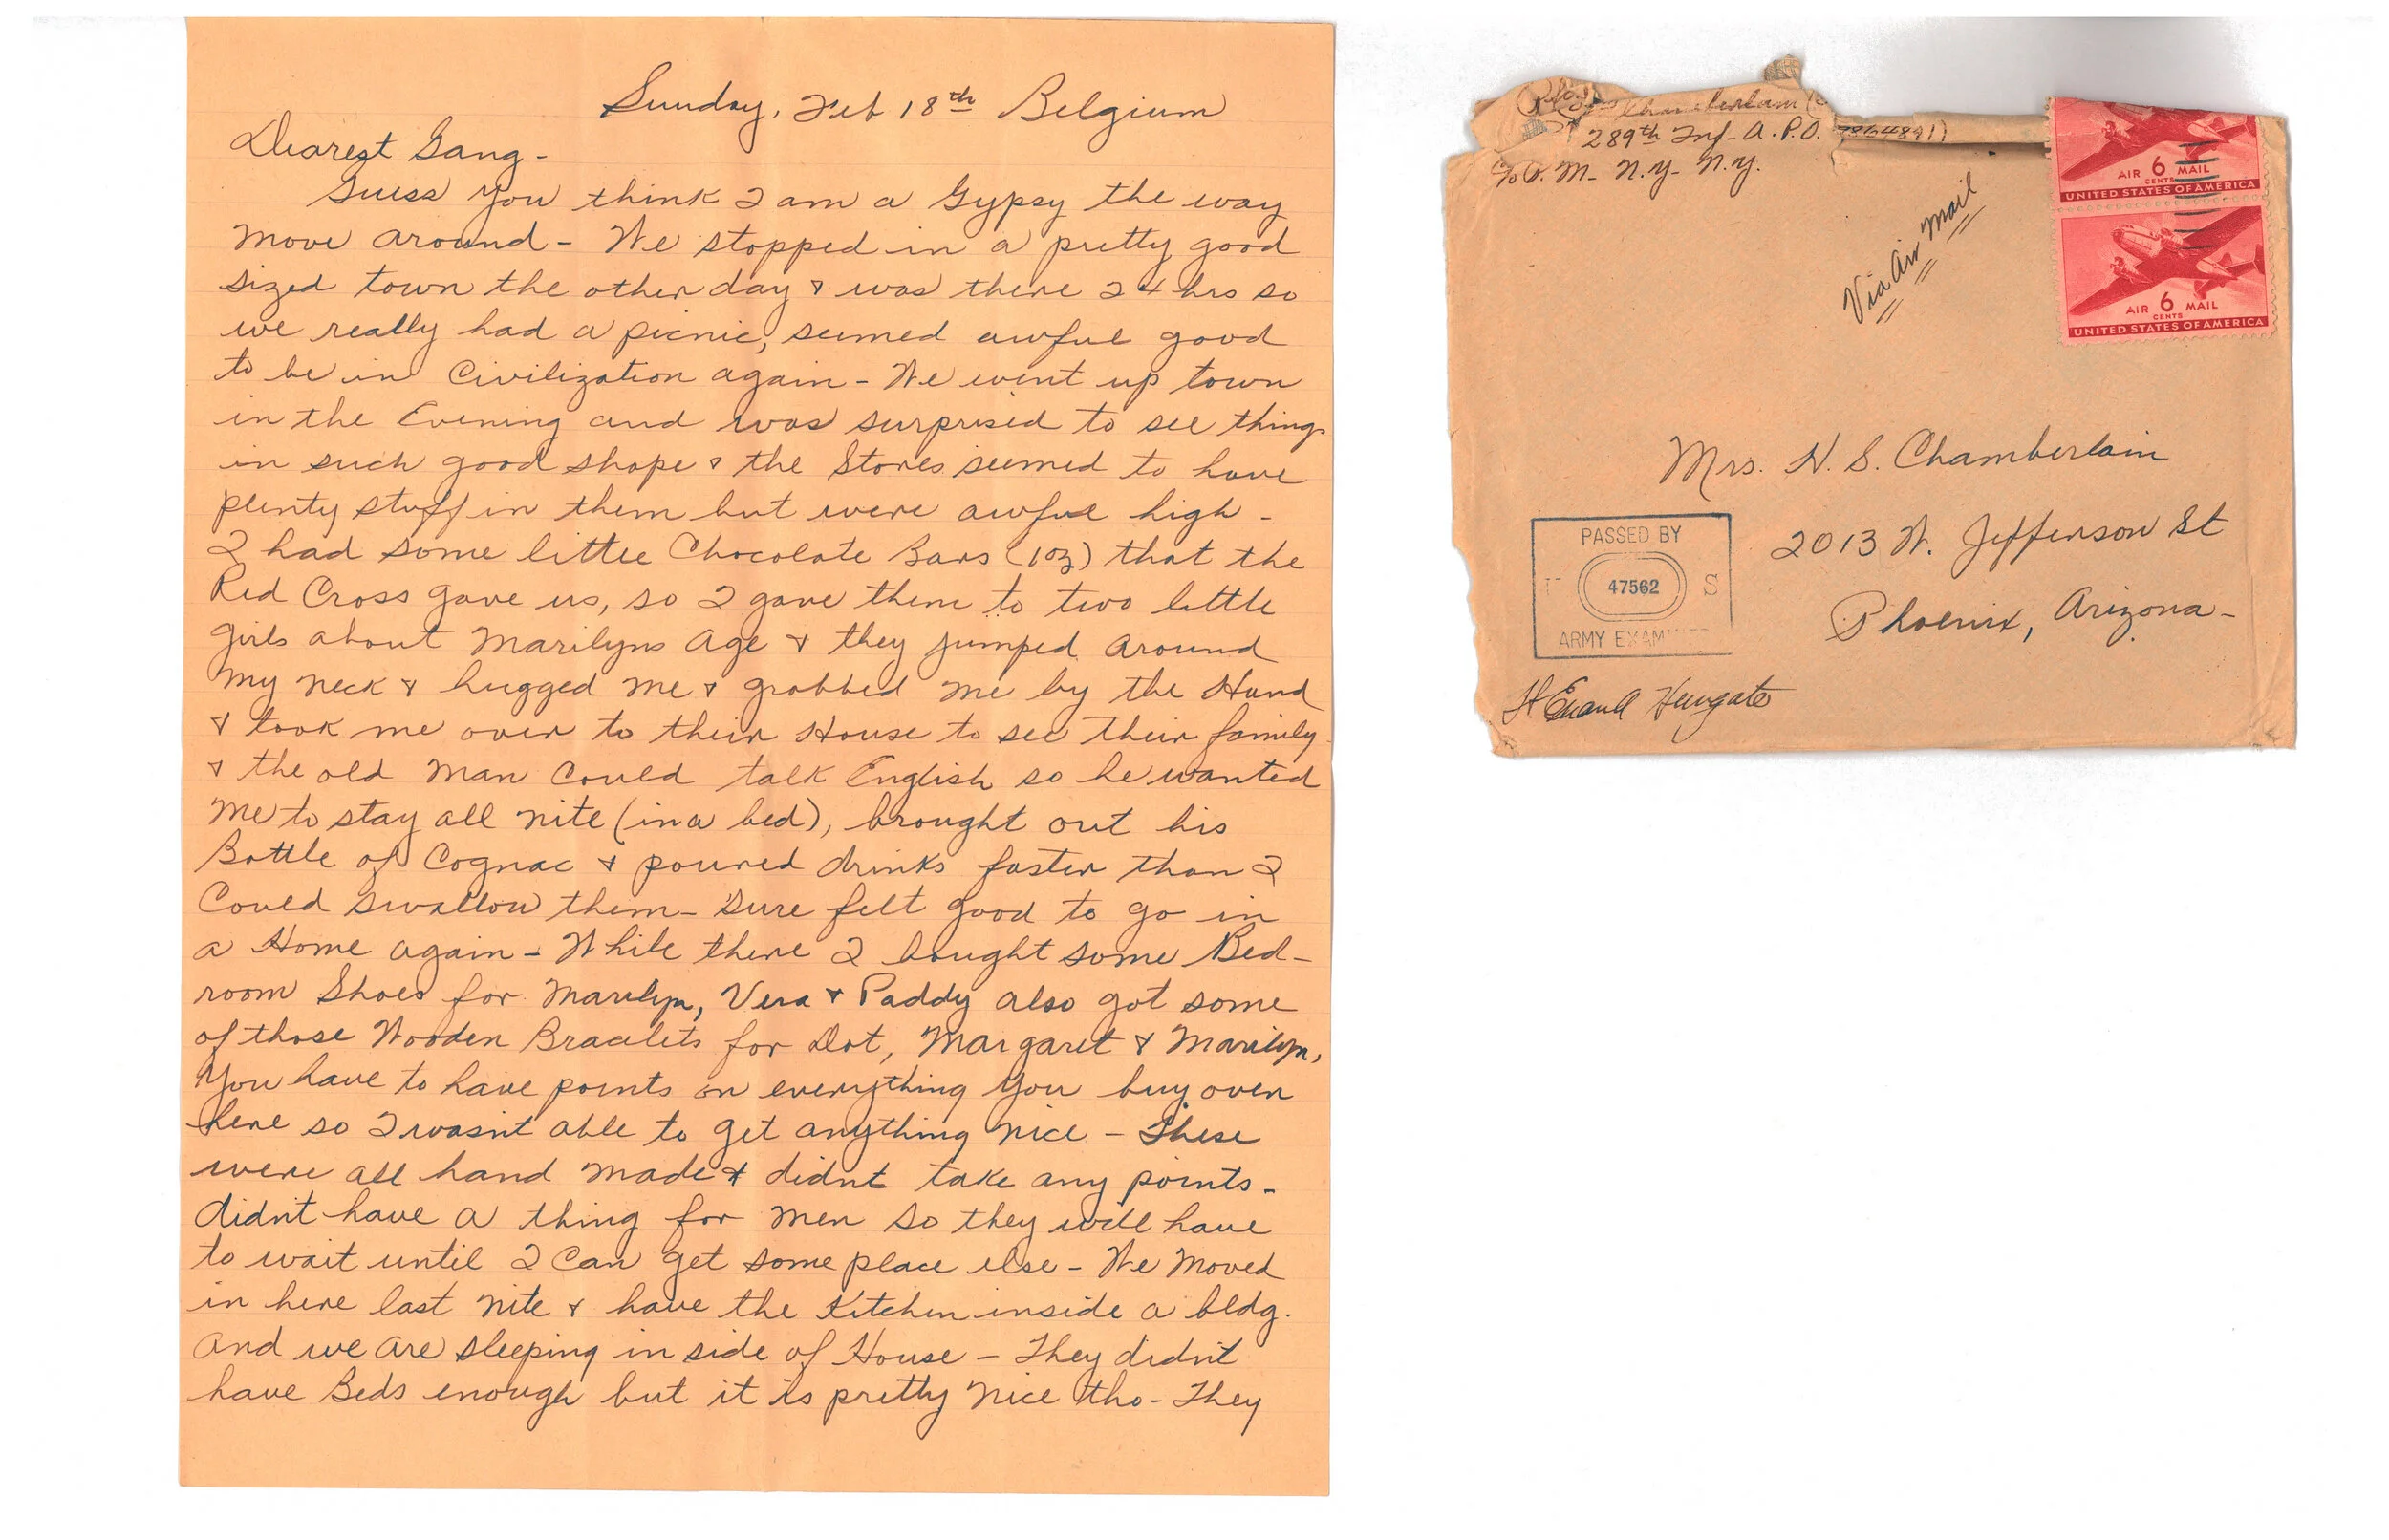 Sunday, Feb 18th Belgium
Dearest Gang -
Guess you think I am a Gypsy the way
move around - We stopped in a pretty good
sized town the other day & was there 24 hrs so
we really had a picnic, seemed awful good
to be in Civilization again - We went up town
in the Evening and was surprised to see things
in such good shape & the Stores seemed to have
plenty stuff in them but were awful high -
I had some little Chocolate Bars (1oz) that the
Red Cross gave us, so I gave them to two little
girls about Marilyns Age & they jumped around
my neck & hugged me & grabbed me by the Hand
& took me over to their House to see their family
& the old man could talk English so he wanted
me to stay all nite (in a bed), brought out his
Bottle of Cognac & poured drinks faster than I
Could swallow them - Sure felt good to go in
a Home again - While there I bought some Bed-
room Shoes for Marilyn, Vera & Paddy also got some
of those Wooden Bracelets for Dot, Margaret & Marilyn,
You have to have points on everything you buy over
here so I wasnt able to get anything nice - These
were all hand made & didnt take any points -
didn't have a thing for men so they will have
to wait until I can get some place else - We moved
in here last nite & have the Kitchen inside a bldg.
and we are sleeping in side of House - They didn't
have Beds enough but it is pretty nice tho - They
Chamberlain
289th Inf - A.P.O.
N.Y. N.Y.
Via Air Mail
AIR 6 MAIL
CENTS
UNITED STATES OF AMERICA
AIR 6 MAIL
CENTS
UNITED STATES OF AMERICA
Mrs. H. S. Chamberlain
2013 W. Jefferson St
Phoenix, Arizona -
PASSED BY
47562 S
ARMY